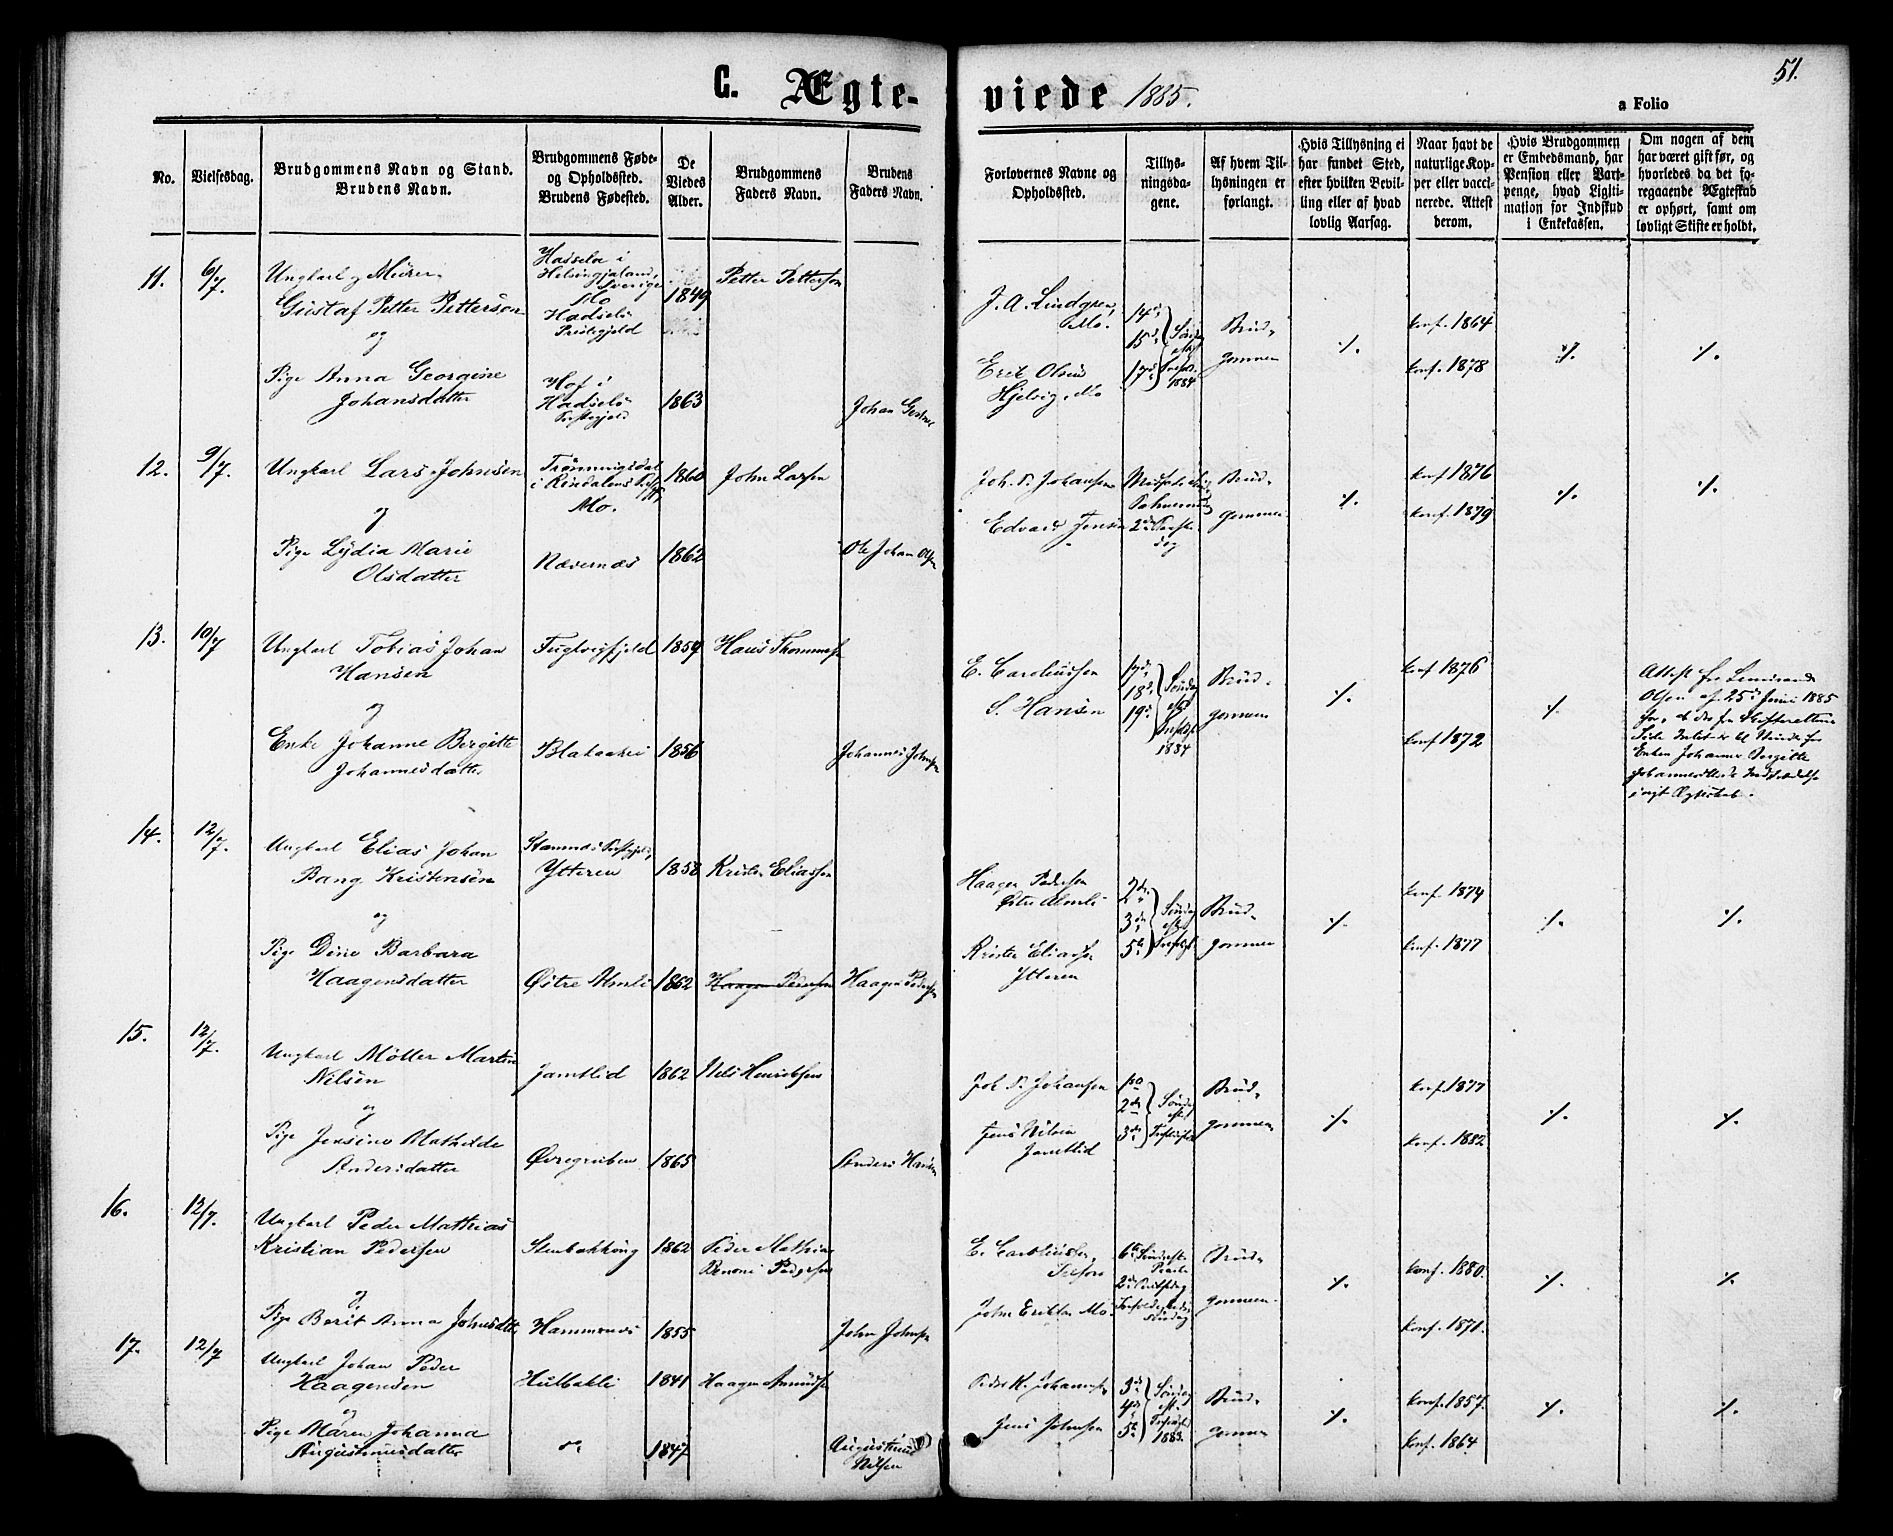 51.
C. Ægte-viede 1885.
a Folio
No.
Vielsesdag.
Brudgommens Navn og Stand.
Brudens Navn.
Brudgommens Føde-
og Opholdssted.
Brudens Fødested.
De
Viedes
Alder.
Brudgommens
Faders Navn.
Brudens
Faders Navn.
Forlovernes Navne og
Opholdssted.
Tillys-
ningsda-
gene.
Af hvem Til-
lysningen er
forlangt.
Hvis Tillysning ei
har fundet Sted,
efter hvilken Bevil-
ling eller af hvad
lovlig Aarsag.
Naar havt de
naturlige Kop-
per eller vacci-
nerede. Attest
derom.
Hvis Brudgommen
er Embedsmand, har
Pension eller Vart-
penge, hvad Ligiti-
mation for Indskud
i Enkekassen.
Om nogen af dem
har været gift før, og
hvorledes da det fo-
regaaende Ægteskab
er ophørt, samt om
lovligt Skifte er holdt.
11. 6/7.
Ungkarl og Murer
Gustaf Petter Petterson
og
Pige Anna Georgine
Johansdatter
Hassela i
Helsingjaland,
Sverige
Mo
Hadselø
Præstegjeld
Hof i
Hadselø
Præstegjeld
1849
1863
Petter Petterson
Johan
J. A. Lindgren,
Mo.
Erik Olsen
Hjelvig, Mo
14de
15de
17de
Søndag
eft.
Trefold.
1884
Brud-
gommen
./.
konf. 1864
konf. 1878
./.
./.
12. 9/7.
Ungkarl Lars Johnsen
og
Pige Lydia Marie
Olsdatter
i Rindalens
Mo.
Nævernæs
1860
1862
John Larsen
Ole Johan Olsen
Joh. P. Johansen
Edvard Jensen
Palmesøndag
2den Paaske-
dag
Brud-
gommen
./.
konf. 1876
konf. 1879
./.
./.
13. 10/7
Ungkarl Tobias Johan
Hansen
og
Enke Johanne Bergitte
Johannesdatter
Fuglvigfjeld
Blakaakri
1859
1856
Hans Thommesen
Johannes Johnsen
E. Caroliussen
S. Hansen
17de
18de
19de
Søndag
eft.
Trefold.
1884
Brud-
gommen
./.
konf. 1876
konf. 1872
./.
Attest fra Lensmand
Olsen af 25de Juni 1885
for, at der fra Skifterettens
Side Intet er til Hinder for
Enken Johanne Bergitte
Johannesdatters Indtrædelse
i nyt Ægteskab.
14. 12/7.
Ungkarl Elias Johan
Bang Kristensen
og
Pige Dine Barbara
Haagensdatter
Stamnæs Præstegjeld,
Ytteren
Østre Almli
1858
1862
Kristen Eliassen
Haagen Pedersen
Haagen Pedersen
Haagen Pedersen
Østre Almli
Kristen Eliassen
Ytteren
2den
3die
5te
Søndag
eft.
Trefold.
Brud-
gommen
./.
konf. 1874
konf. 1877
./.
./.
15. 12/7.
Ungkarl Møller Martin
Nilsen
og
Pige Jensine Mathilde
Andersdatter
Jamtlid
Øvregruben
1862
1865
Nils Henriksen
Anders Hansen
Joh P. Johansen
Jens Nilsen
Jamtlid
1ste
2den
3die
Søndag
eft.
Trefoldighed
Brud-
gommen
./.
konf. 1877
konf. 1882
./.
./.
16. 12/7.
Ungkarl Peder Mathias
Kristian Pedersen
og
Pige Berit Anna Johnsdatter
Stenbakkøng
Hammernæs
1862
1855
Peder Mathias
Benoni Pedersen
John Johnsen
E. Caroliussen,
Selfors
John Eriksen Mo.
6te Søndag eft.
Paaske
2den Pintsedag
Trefoldigheds
Søndag
Brud-
gommen
./.
konf. 1880.
konf. 1871.
./.
./.
17. 12/7
Ungkarl Johan Peder
Haagensen
og
Pige Maren Johanna
Augustinusdatter
Hulbakli
do
1841
1847
Haagen Amundsen
Augustinus
Nilsen
Peder K. Johansen
Jens Johnsen
3die
4de
5te
Søndag
eft.
Trefoldighed
1883.
Brud-
gommen
./.
konf. 1857.
konf. 1864
./.
./.